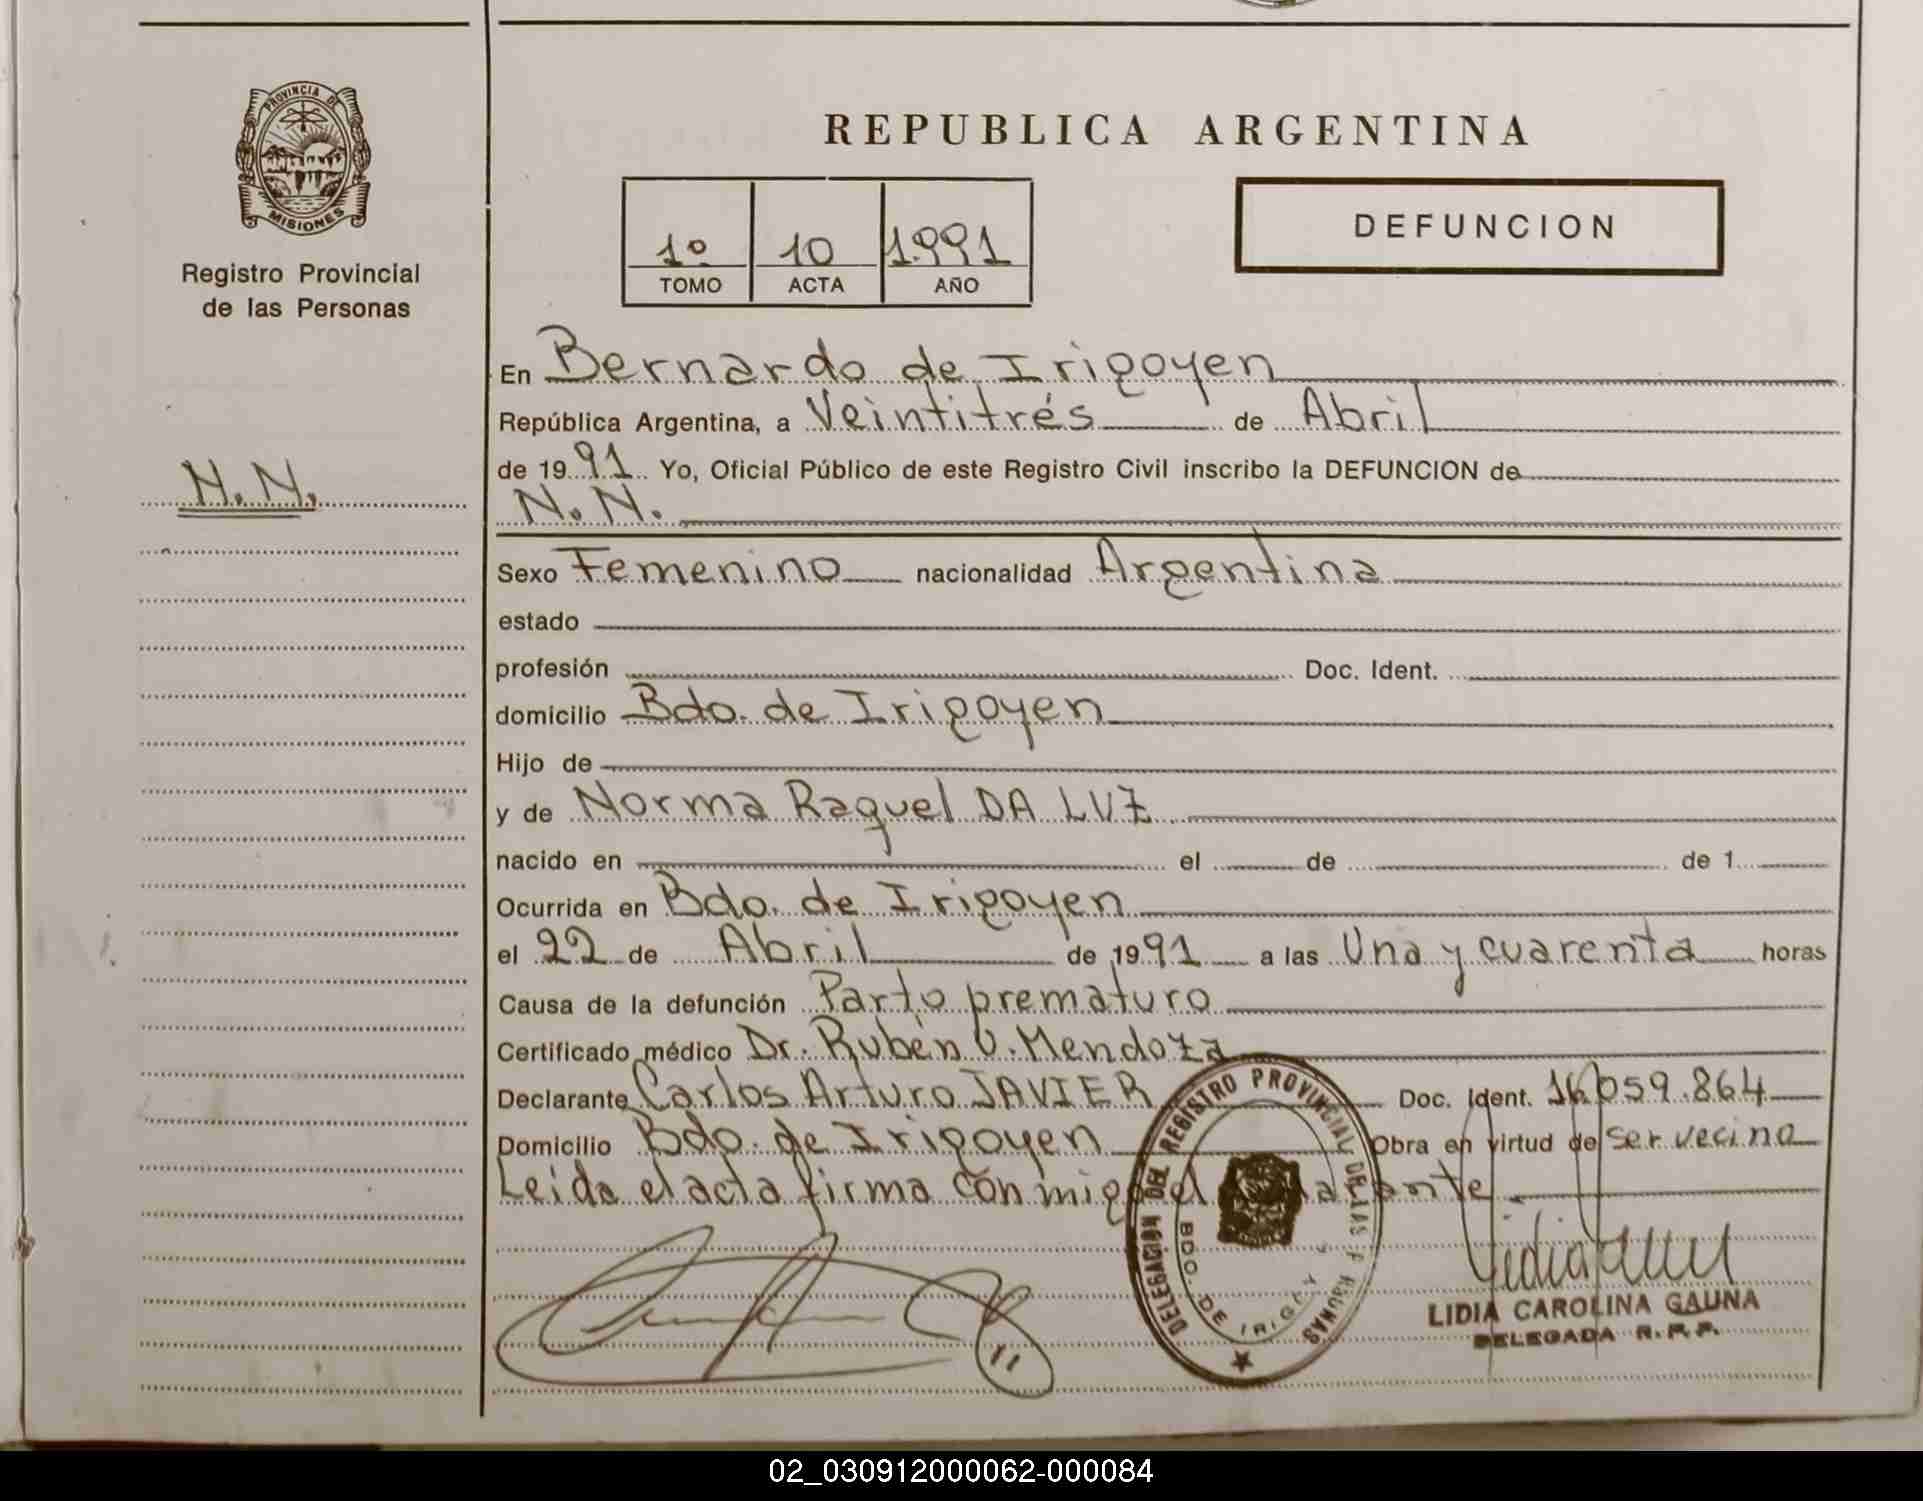 PROVINCIA DE
MISIONES
Registro Provincial
de las Personas
N.N.
REPUBLICA ARGENTINA
1º 10 1.991
TOMO ACTA AÑO
DEFUNCION
En Bernardo de Irigoyen
República Argentina, a Veintitrés de Abril
de 1991 Yo, Oficial Público de este Registro Civil inscribo la DEFUNCION de
N.N.
Sexo Femenino nacionalidad Argentina
estado
profesión Doc. Ident.
domicilio Bdo. de Irigoyen
Hijo de
y de Norma Raquel DA LUZ
nacido en el de de 1
Ocurrida en Bdo. de Irigoyen
el 22 de Abril de 1991 a las Una y cuarenta horas
Causa de la defunción Parto prematuro
Certificado médico Dr. Rubén V. Mendoza
Declarante Carlos Arturo JAVIER Doc. Ident. 16.059.864
Domicilio Bdo. de Irigoyen Obra en virtud de ser vecino
Leída el acta firma conmigo el
DELEGACION DEL REGISTRO PROVINCIAL DE LAS
BDO. DE IRIGOY
LIDIA CAROLINA GAUNA
DELEGADA R.P.P.
02_030912000062-000084